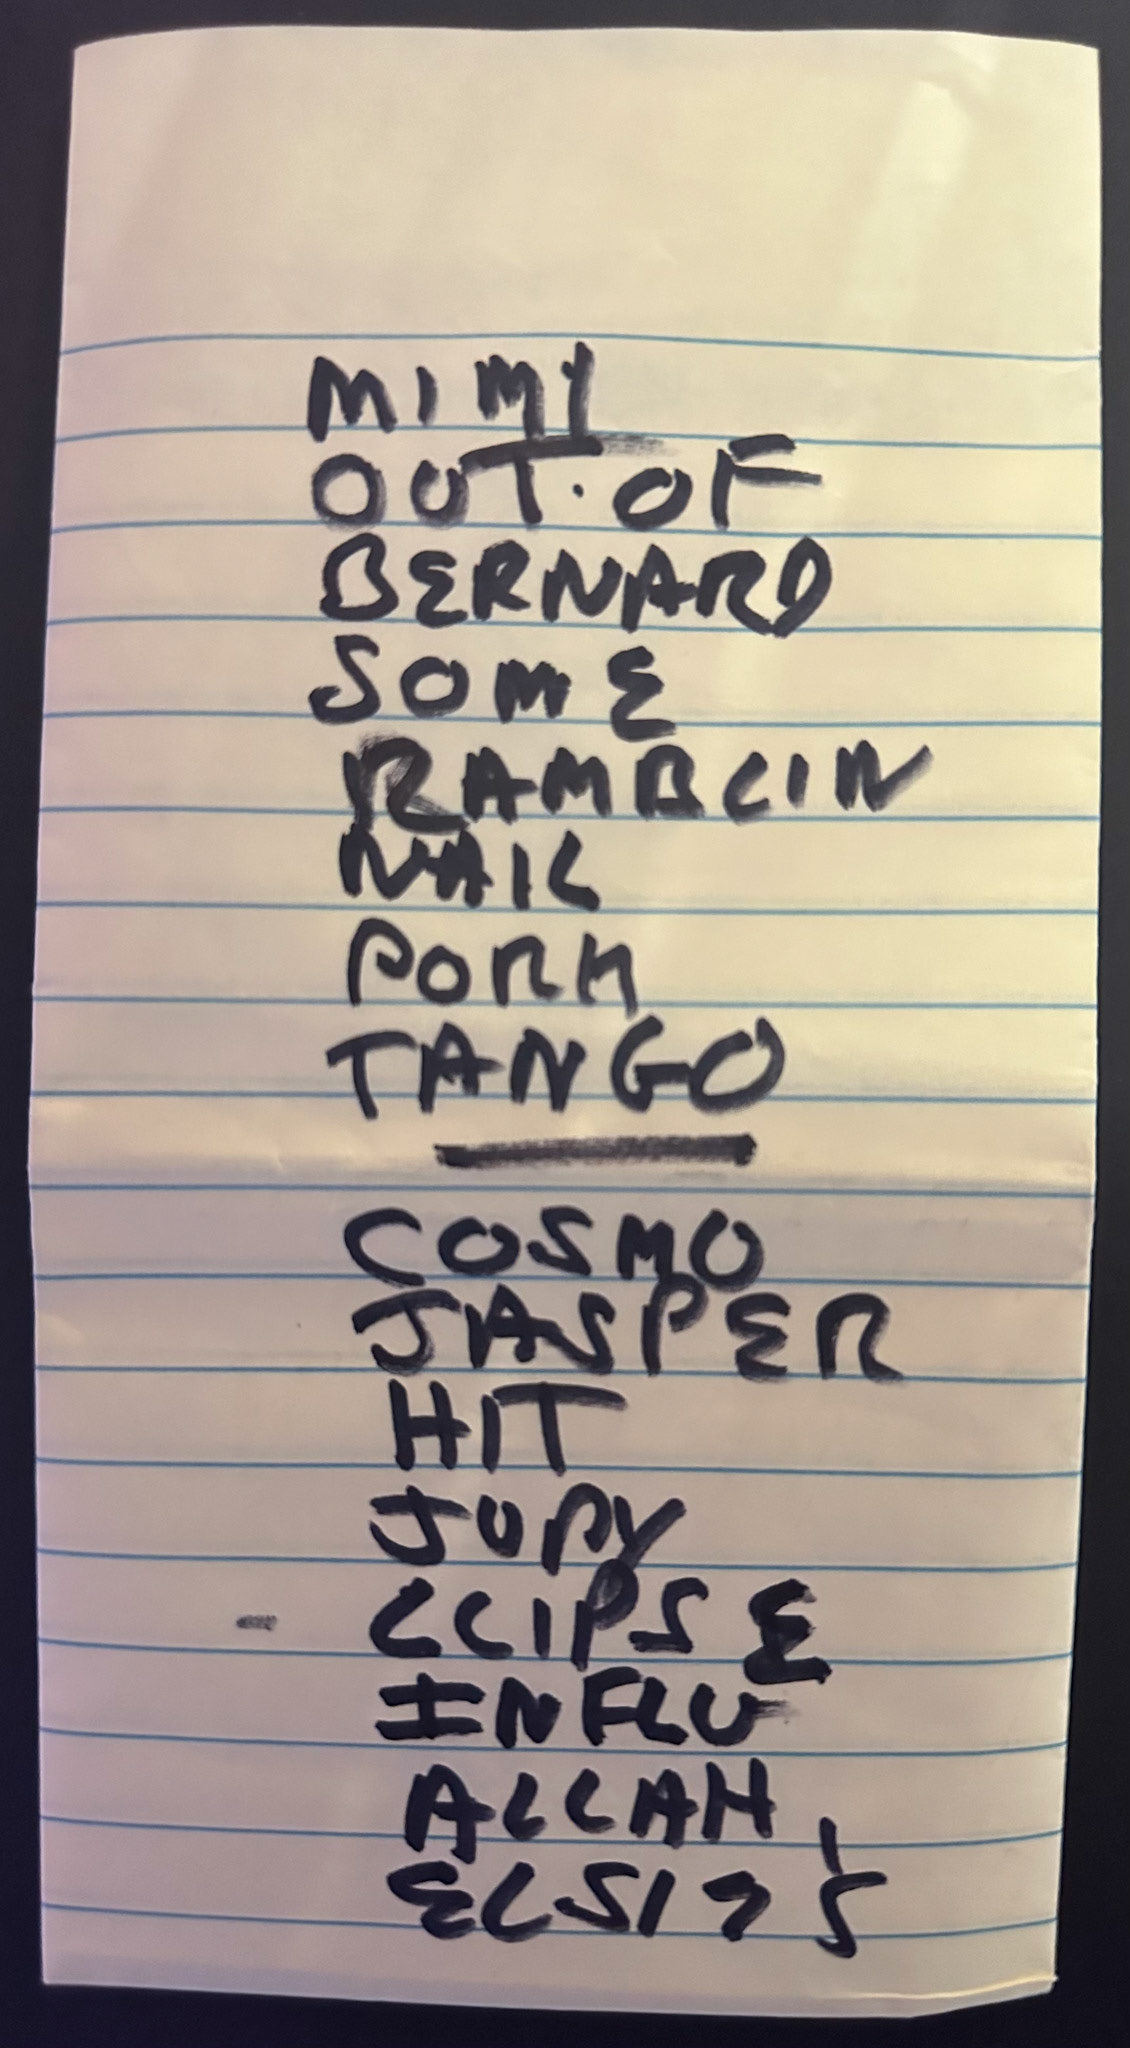 MIMI
OUT OF
BERNARD
SOME
RAMBLIN
NAIL
PORK
TANGO
COSMO
JASPER
HIT
JUPY
CLIPSE
INFLU
ALLAH
ELSIE'S